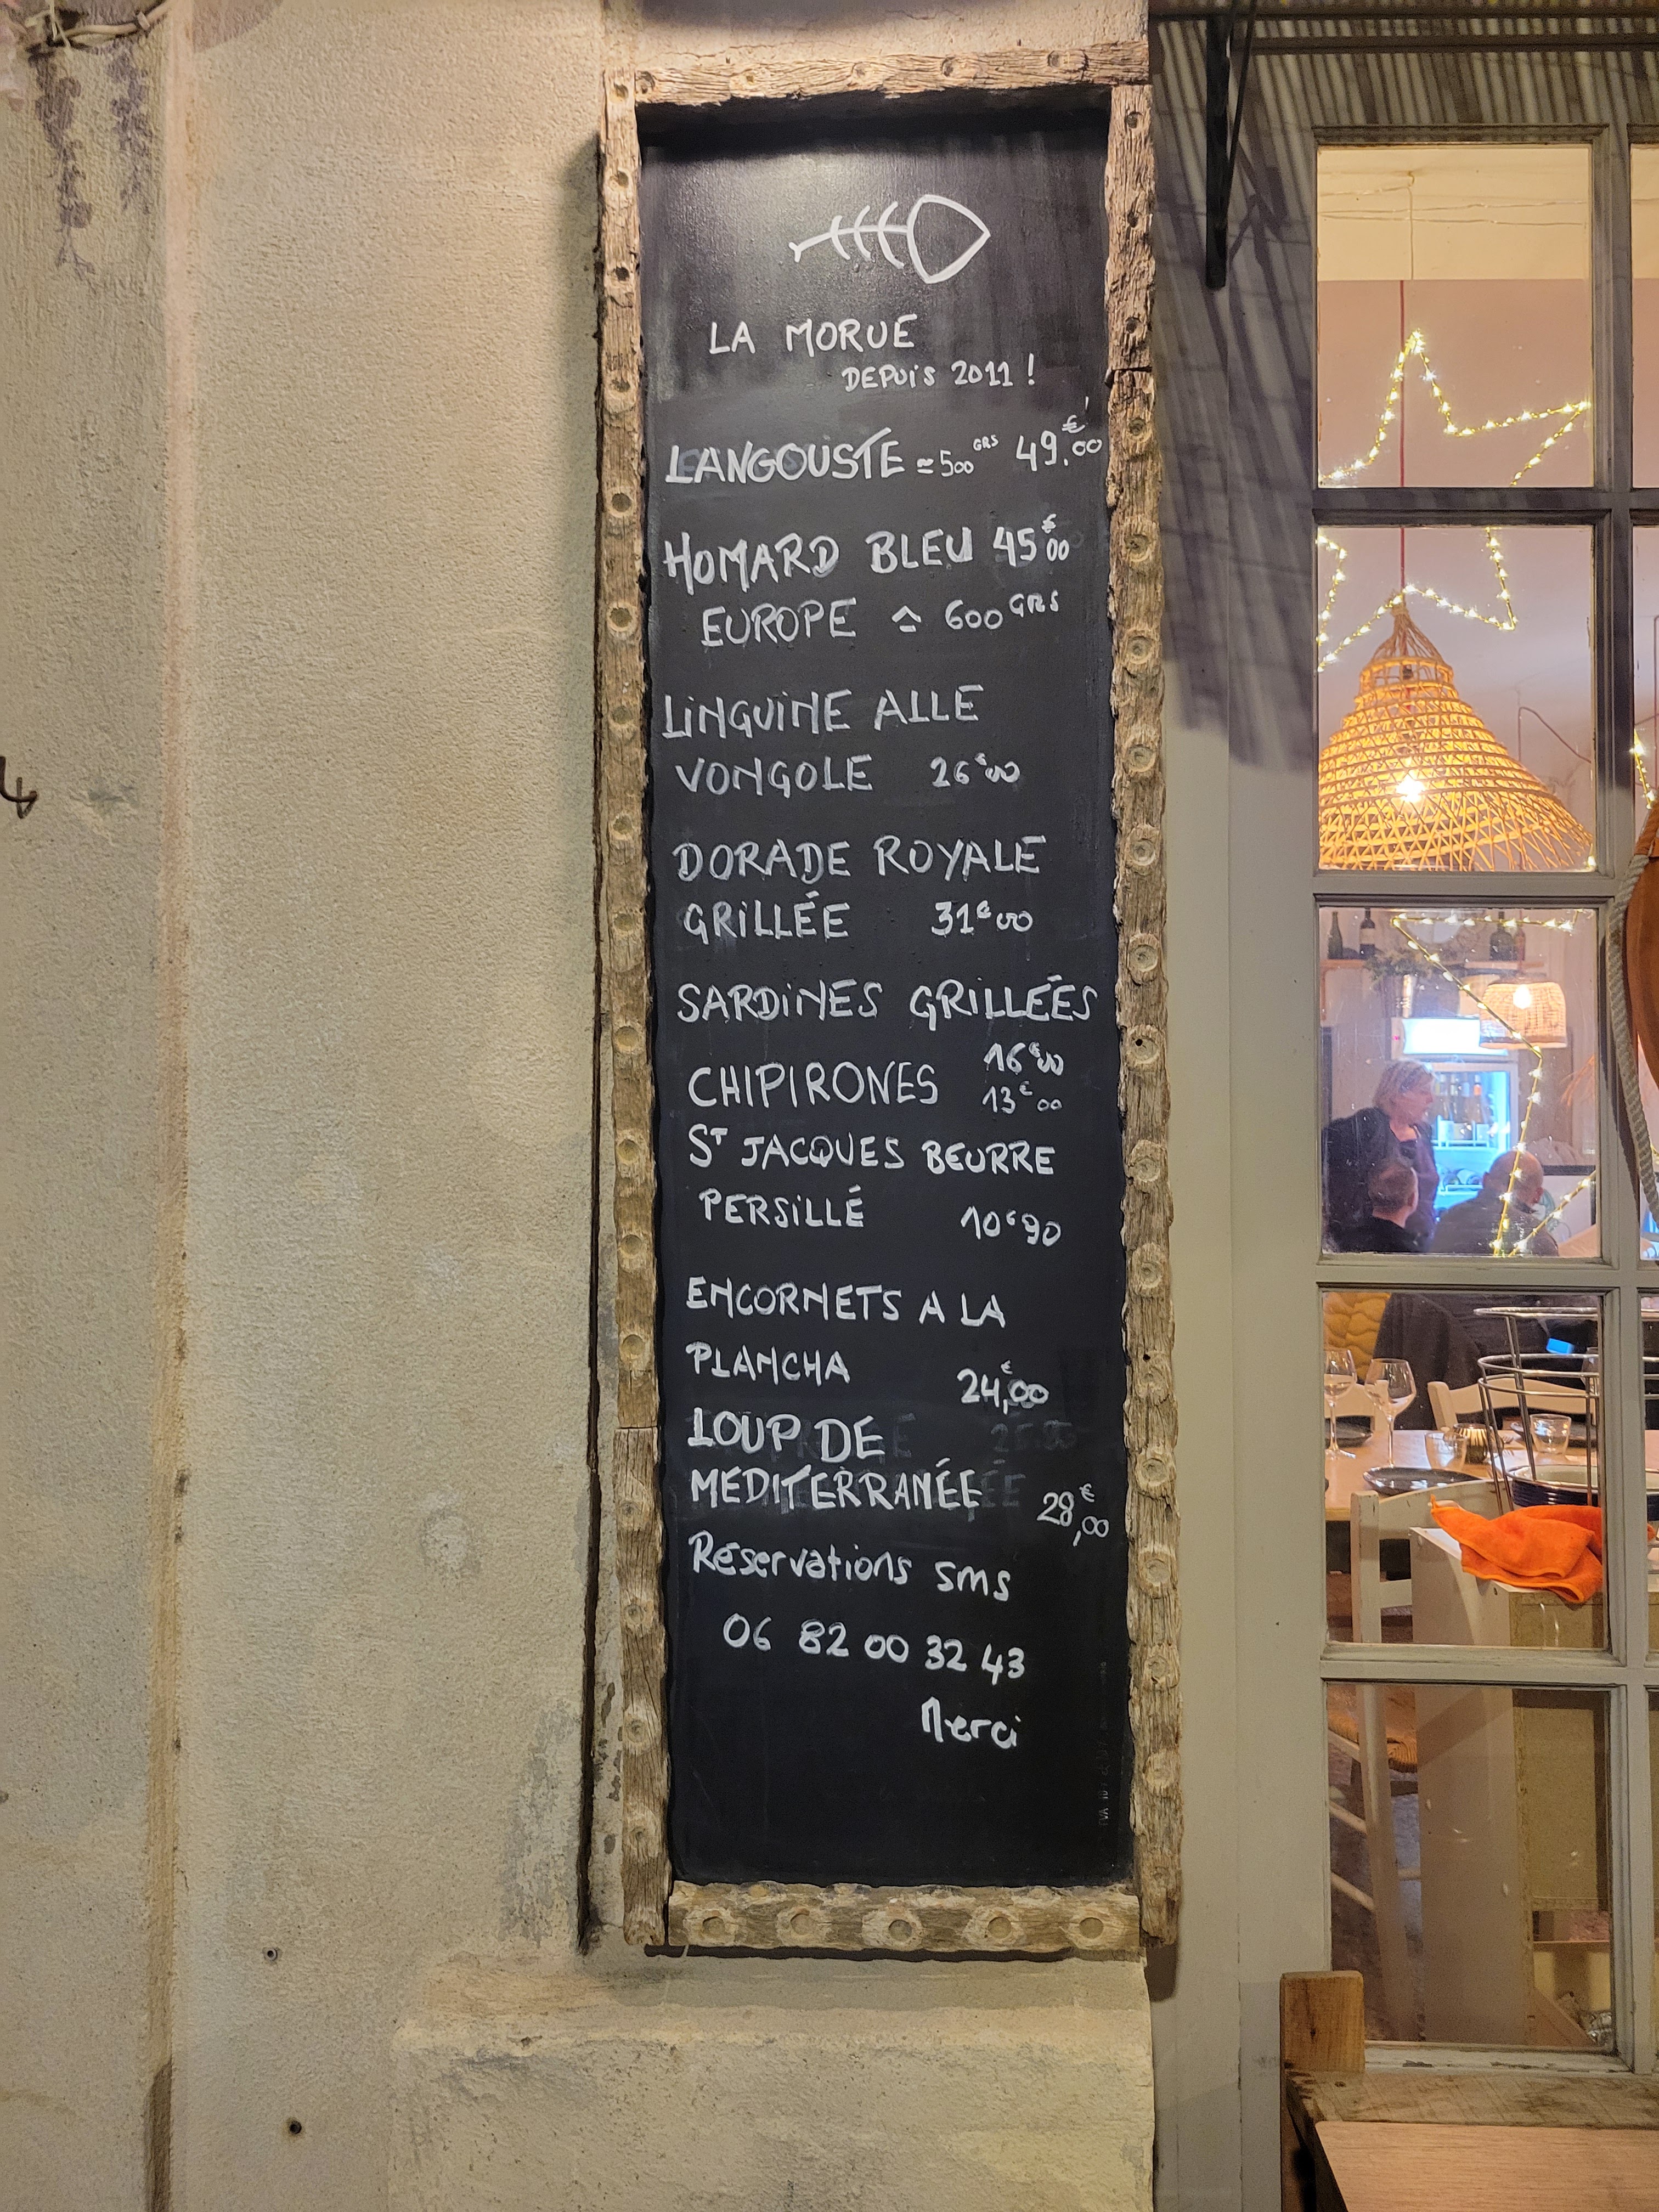 LA MORUE
DEPUIS 2011 !
LANGOUSTE ≃ 500 GRS 49.€00
HOMARD BLEU 45€00
EUROPE ≃ 600 GRS
LINGUINE ALLE
VONGOLE 26€00
DORADE ROYALE
GRILLÉE 31€00
SARDINES GRILLÉES
16€00
CHIPIRONES 13€00
ST JACQUES BEURRE
PERSILLÉ 10€90
ENCORNETS A LA
PLANCHA 24,€00
LOUP DE
MÉDITERRANÉE 28,€00
Réservations sms
06 82 00 32 43
Merci